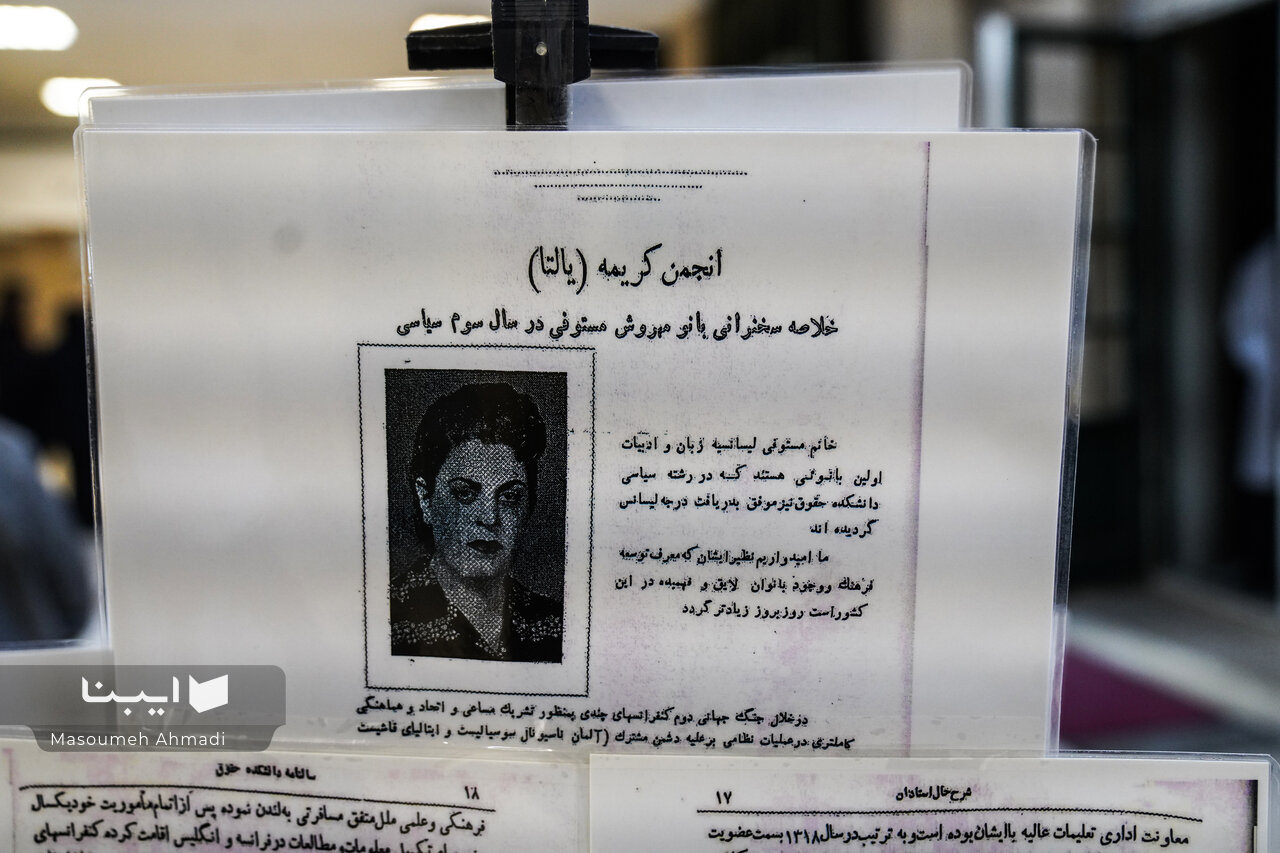 انجمن کریمه (یالتا)
خلاصه سخنرانی بانو مهروش مستوفی در سال سوم سیاسی
خانم مستوفی لیسانسیه زبان و ادبیات
اولین بانوئی هستند که در رشته سیاسی
دانشکده حقوق نیز موفق بدریافت درجه لیسانس
گردیده اند
ما امیدواریم نظیر ایشان که معرف توسعه
فرهنك ووجود بانوان لایق و فهمیده در این
کشوراست روزبروز زیادتر گردد
درخلال جنگ جهانی دوم کنفرانسهای چندی بمنظور تشریك مساعی و اتحاد و هماهنگی
کاملتری در عملیات نظامی برعلیه دشمن مشترك (آلمان ناسیونال سوسیالیست و ایتالیای فاشیست
ایبنا
Masoumeh Ahmadi
شرح حال استادان
۱۷
معاونت اداری تعلیمات عالیه با ایشان بوده است و به ترتیب در سال ۱۳۱۸ بسمت عضویت
۱۸
سالنامه دانشکده حقوق
فرهنگی و علمی ملل متفق مسافرتی به لندن نموده پس از اتمام مأموریت خود یکسال
معلومات و مطالعات در فرانسه و انگلیس اقامت کرده کنفرانسهای